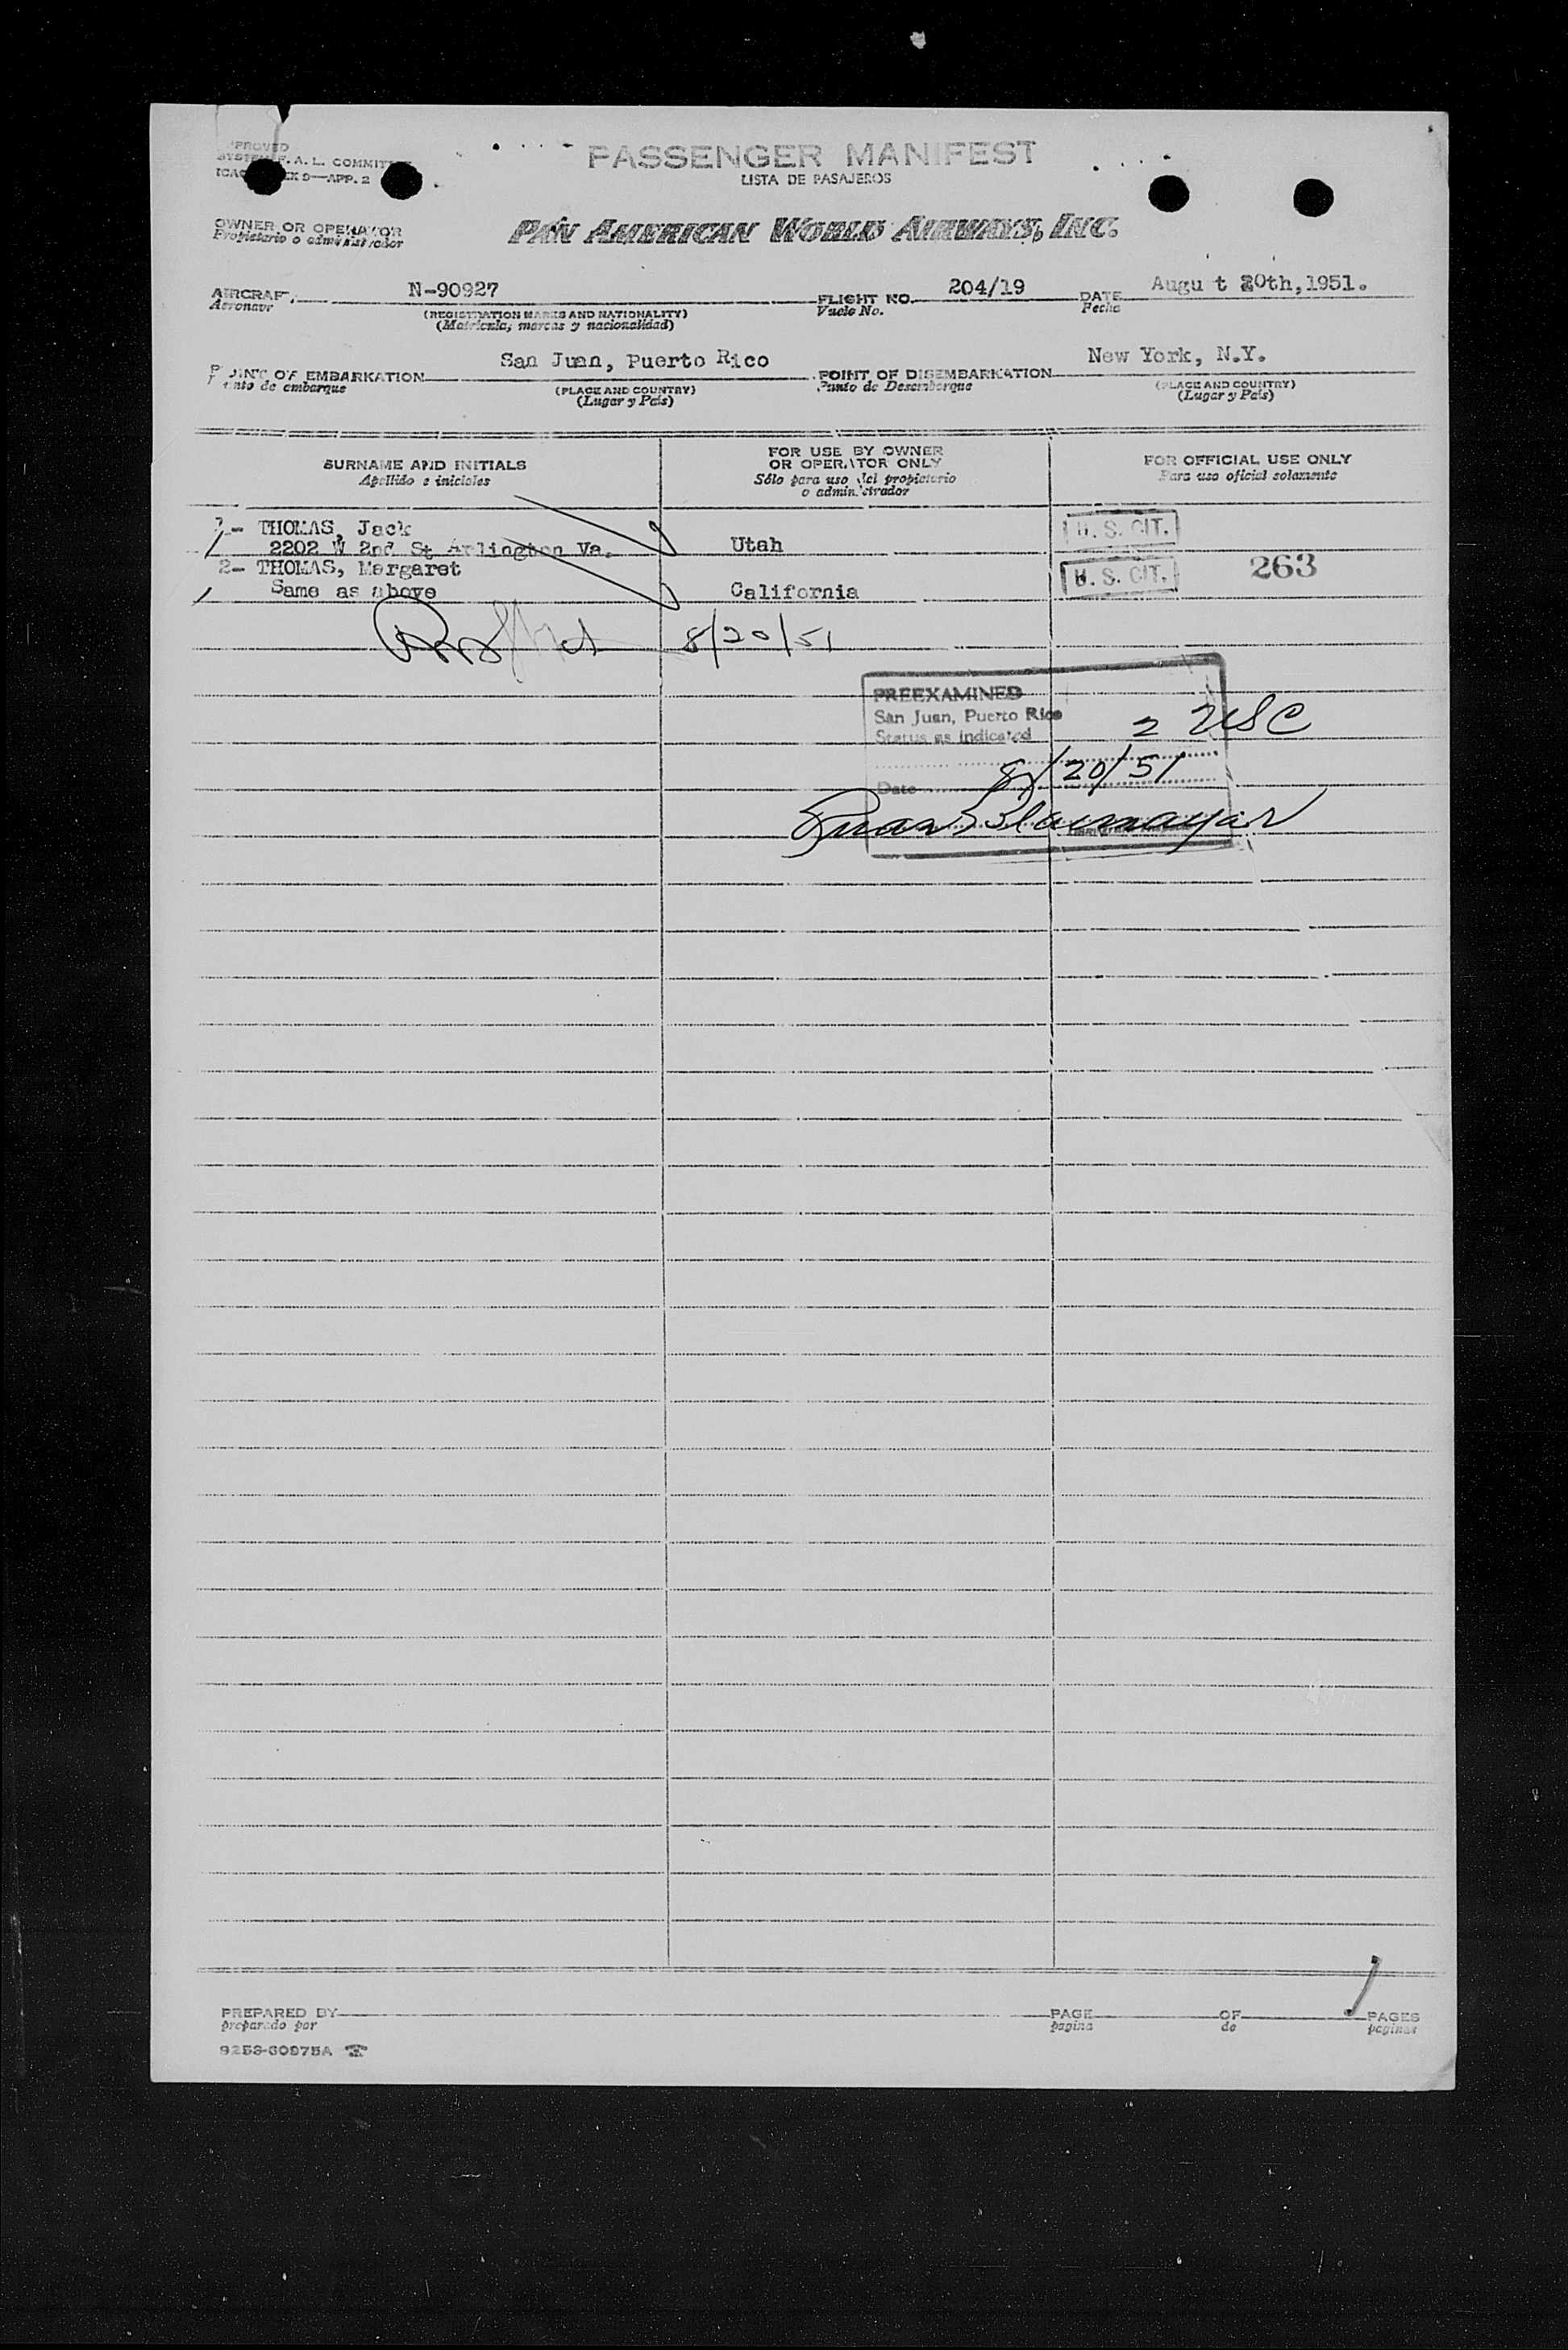 PASSENGER MANIFEST
LISTA DE PASAJEROS
F. A. L. COMMIT
9—APP. 2
OWNER OR OPERATOR
Propietario o administrador
PAN AMERICAN WORLD AIRWAYS, INC.
AIRCRAFT N-90927 FLIGHT NO. 204/19 DATE Augu t 20th,1951.
Aeronave (REGISTRATION MARKS AND NATIONALITY) Vuelo No. Fecha
(Matricula, marcas y nacionalidad)
POINT OF EMBARKATION San Juan, Puerto Rico POINT OF DISEMBARKATION New York, N.Y.
Punto de embarque (PLACE AND COUNTRY) Punto de Desembarque (PLACE AND COUNTRY)
(Lugar y País) (Lugar y País)
SURNAME AND INITIALS FOR USE BY OWNER OR OPERATOR ONLY FOR OFFICIAL USE ONLY
Apellido e iniciales Sólo para uso del propietario o administrador Para uso oficial solamente
1- THOMAS, Jack U. S. CIT.
2202 W 2nd St Arlington Va. Utah
2- THOMAS, Margaret U. S. CIT. 263
Same as above California
8/20/51
PREEXAMINED
San Juan, Puerto Rico
Status as indicated 2 USC
Date 8/20/51
PREPARED BY PAGE OF 1 PAGES
preparado por pagina de paginas
9253-60975A